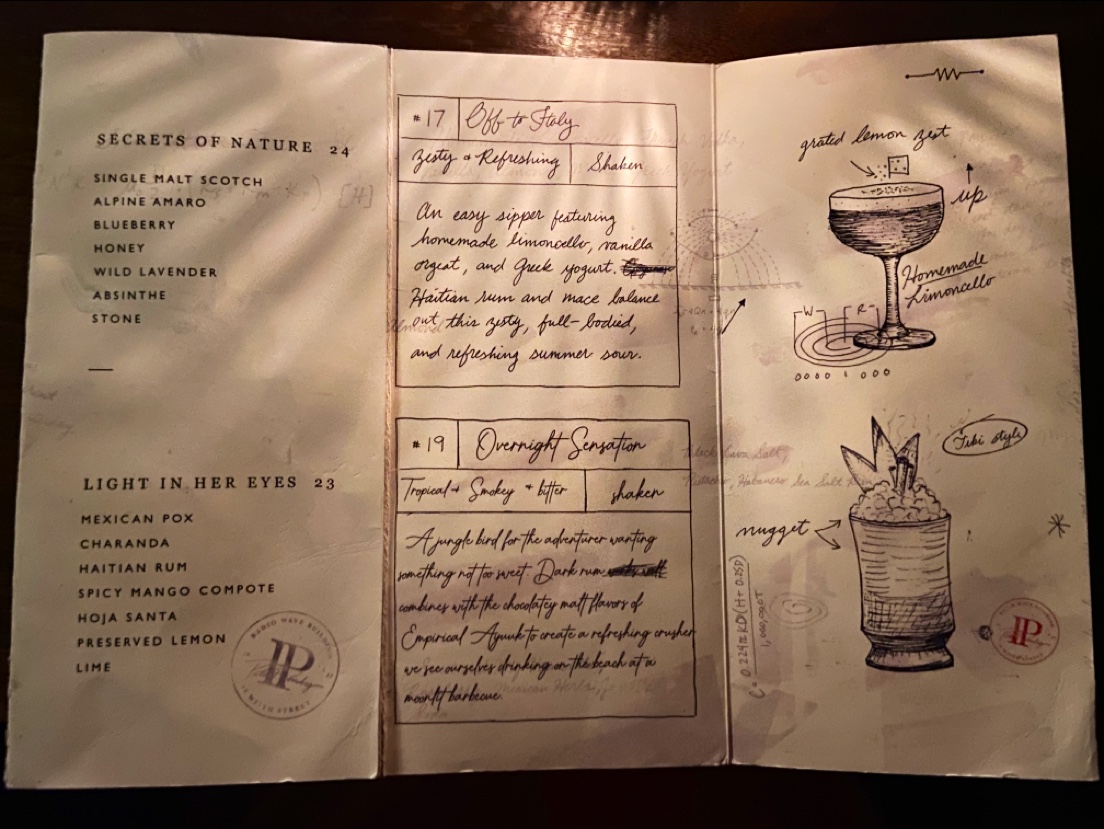 SECRETS OF NATURE 24
SINGLE MALT SCOTCH
ALPINE AMARO
BLUEBERRY
HONEY
WILD LAVENDER
ABSINTHE
STONE
LIGHT IN HER EYES 23
MEXICAN POX
CHARANDA
HAITIAN RUM
SPICY MANGO COMPOTE
HOJA SANTA
PRESERVED LEMON
LIME
IP
#17 Off to Italy
Zesty + Refreshing Shaken
An easy sipper featuring
homemade limoncello, vanilla
orgeat, and Greek yogurt.
Haitian rum and mace balance
out this zesty, full-bodied,
and refreshing summer sour.
#19 Overnight Sensation
Tropical + Smokey + bitter shaken
A jungle bird for the adventurer wanting
something not too sweet. Dark rum
combines with the chocolatey malt flavors of
Empirical Ayuuk to create a refreshing crusher
we see ourselves drinking on the beach at a
moonlit barbecue.
grated lemon zest
up
Homemade
Limoncello
W R
0000 1 000
Tiki style
nugget
IP